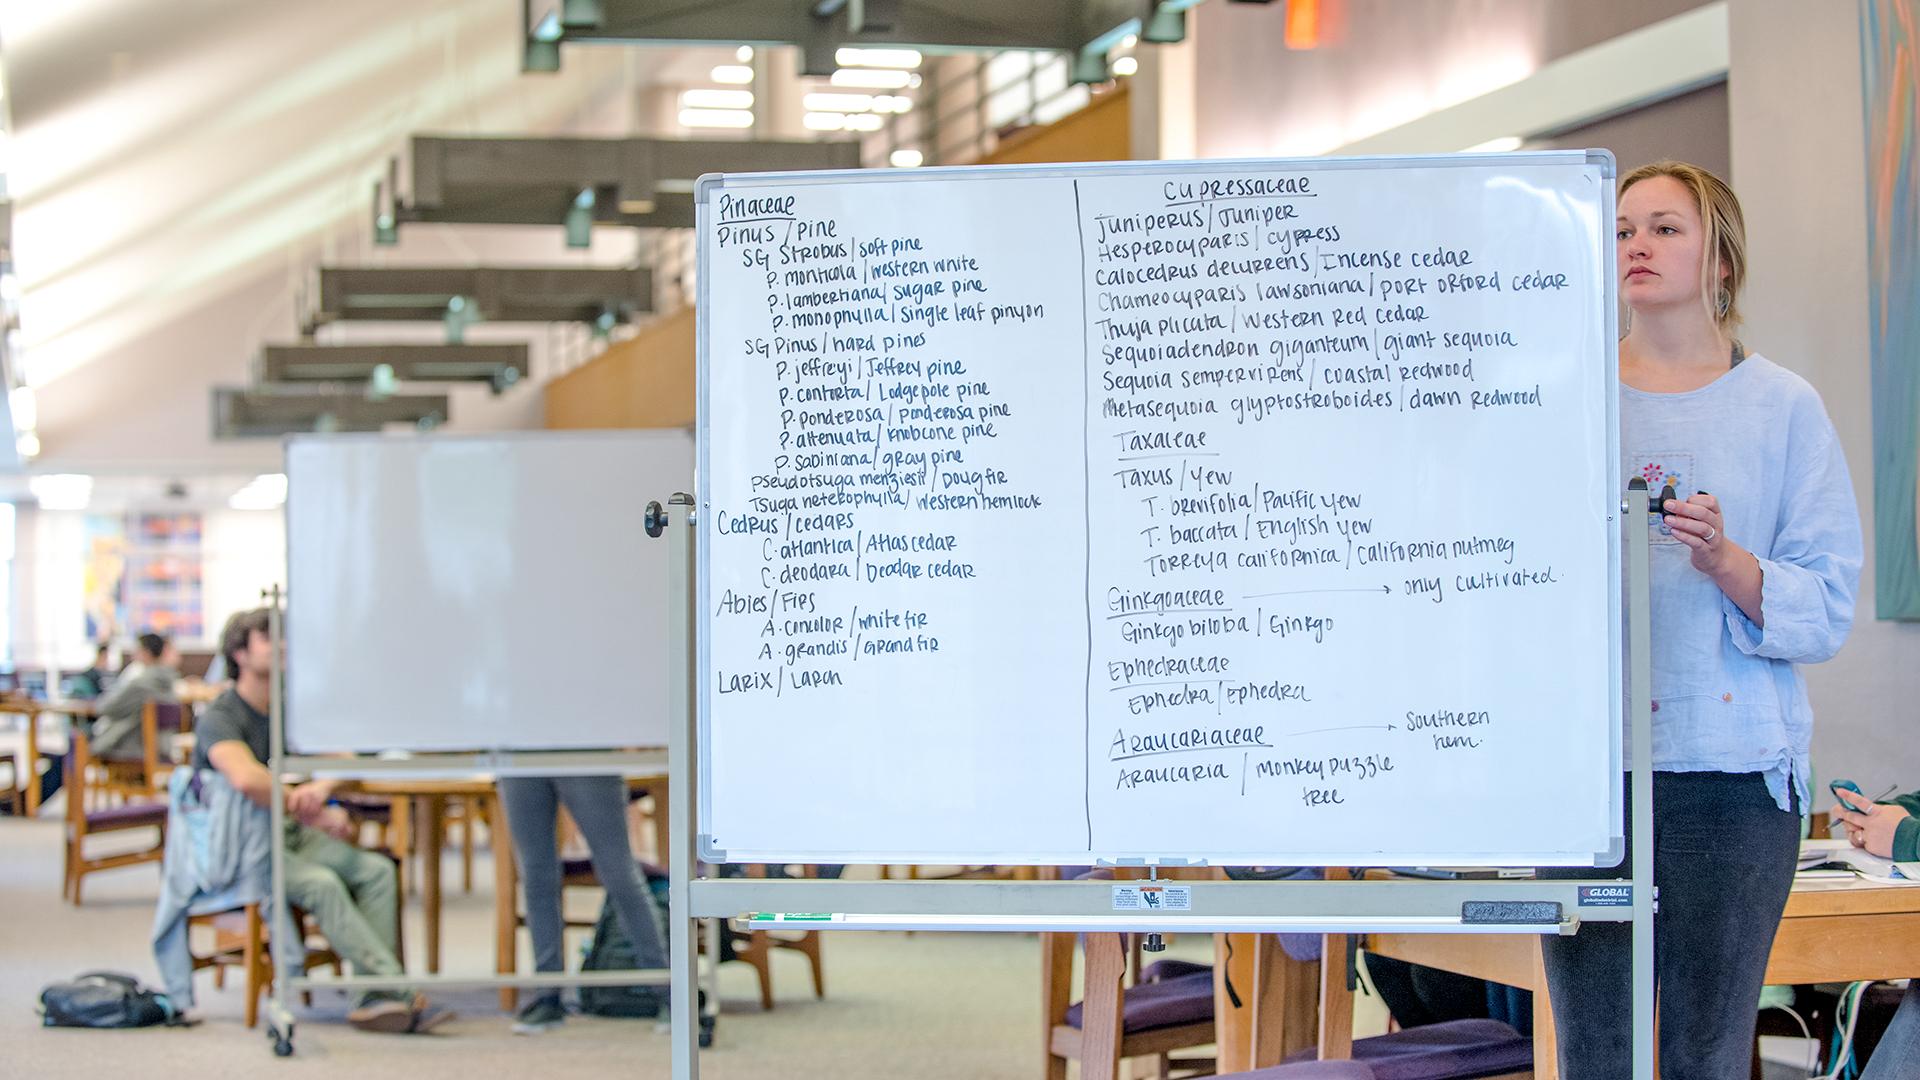 Pinaceae
Pinus / pine
SG Strobus / soft pine
P. monticola / western white
P. lambertiana / sugar pine
P. monophylla / Single leaf pinyon
SG Pinus / hard pines
P. jeffreyi / Jeffrey pine
P. contorta / Lodgepole pine
P. ponderosa / ponderosa pine
P. attenuata / knobcone pine
P. sabiniana / gray pine
Pseudotsuga menziesii / Doug fir
Tsuga heterophylla / Western hemlock
Cedrus / cedars
C. atlantica / Atlas cedar
C. deodara / Deodar cedar
Abies / Firs
A. concolor / white fir
A. grandis / Grand fir
Larix / Larch
Cupressaceae
Juniperus / Juniper
Hesperocyparis / cypress
Calocedrus decurrens / Incense cedar
Chameocyparis lawsoniana / port orford cedar
Thuja plicata / Western Red cedar
Sequoiadendron giganteum / giant sequoia
Sequoia sempervirens / coastal redwood
Metasequoia glyptostroboides / dawn redwood
Taxaceae
Taxus / yew
T. brevifolia / Pacific yew
T. baccata / English yew
Torreya californica / California nutmeg
Ginkgoaceae → only cultivated.
Ginkgo biloba / Ginkgo
Ephedraceae
Ephedra / Ephedra
Araucariaceae → Southern hem.
Araucaria / monkey puzzle
tree
GLOBAL